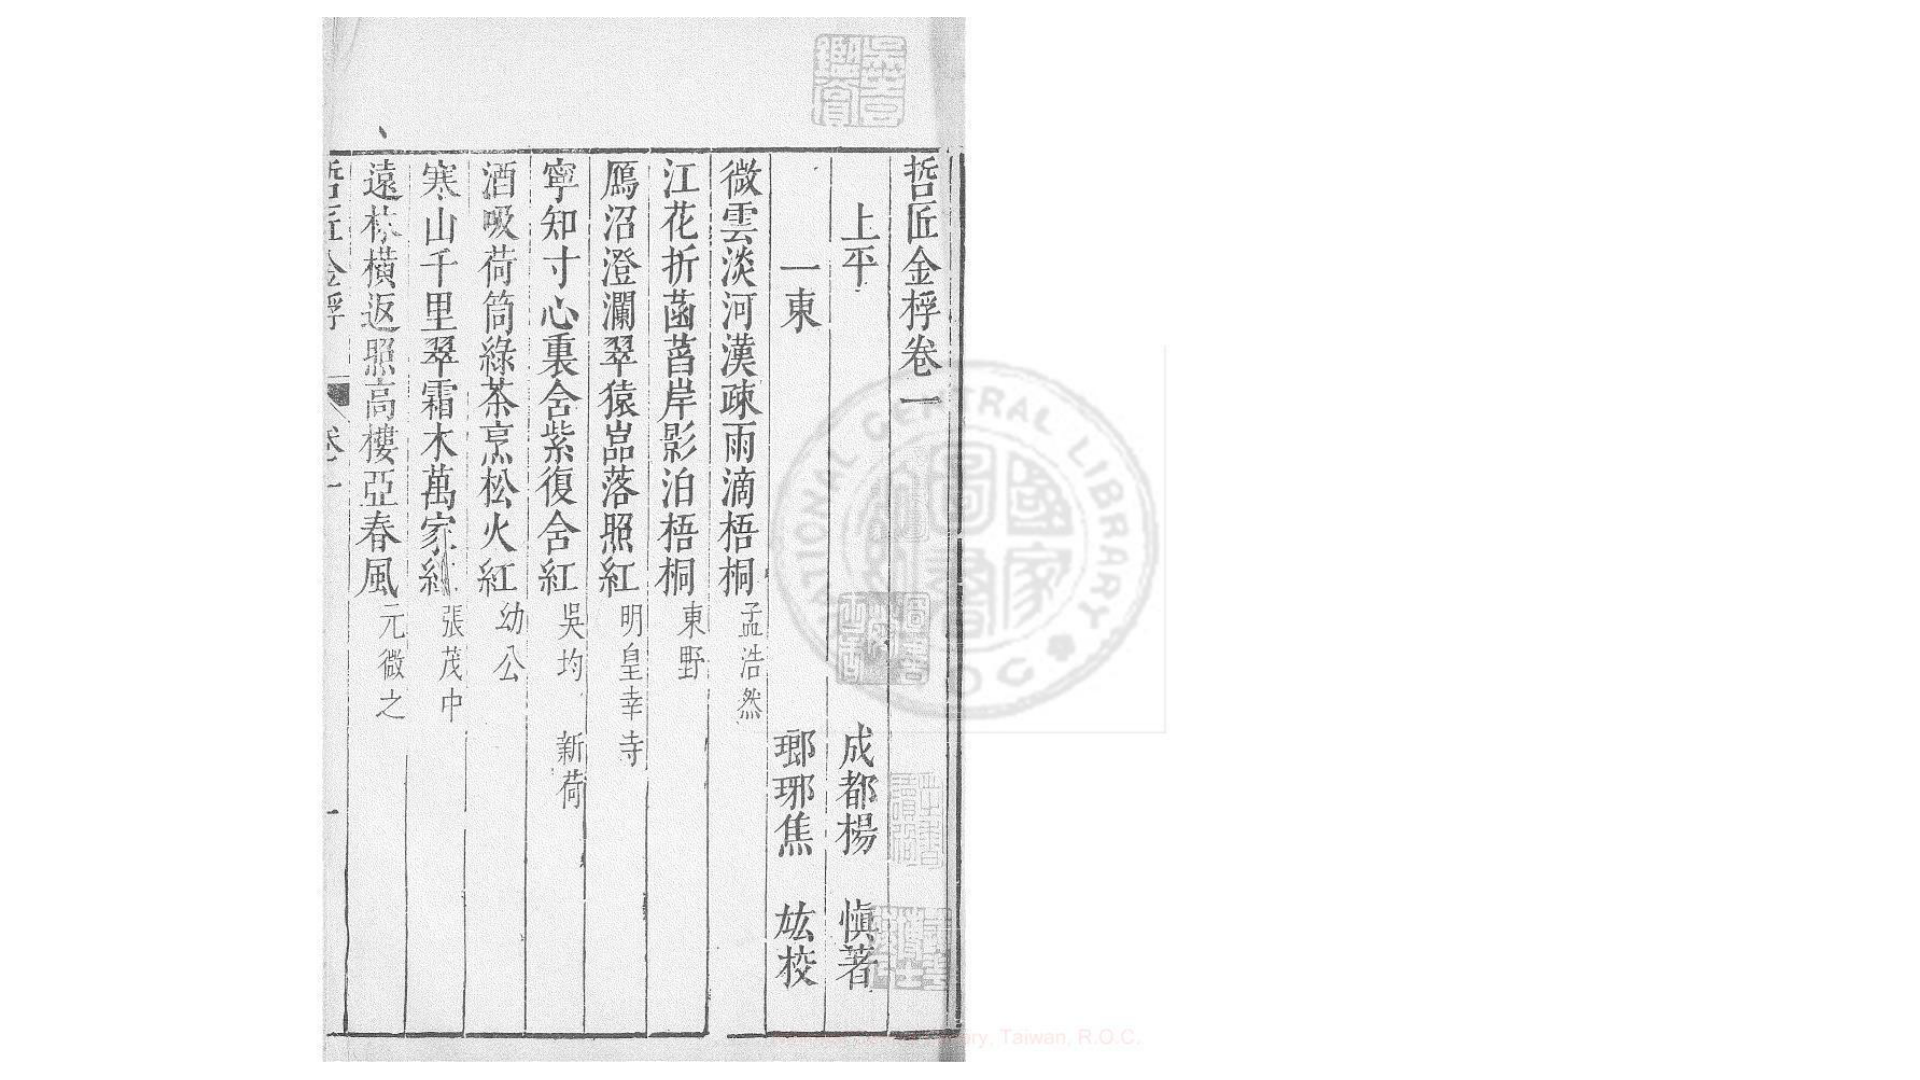 哲匠金桴卷一
上平 成都楊 慎著
一東 瑯琊焦 竑校
微雲淡河漢疎雨滴梧桐 孟浩然
江花折菡萏岸影泊梧桐 東野
鴈沼澄瀾翠猿嵓落照紅 明皇幸寺
寧知寸心裏含紫復含紅 吳均 新荷
酒吸荷筒綠茶烹松火紅 幼公
寒山千里翠霜木萬家紅 張茂中
遠林橫返照高樓亞春風 元微之
哲匠金桴 卷一 一
NATIONAL CENTRAL LIBRARY
R.O.C
國家圖書館
Library, Taiwan, R.O.C.